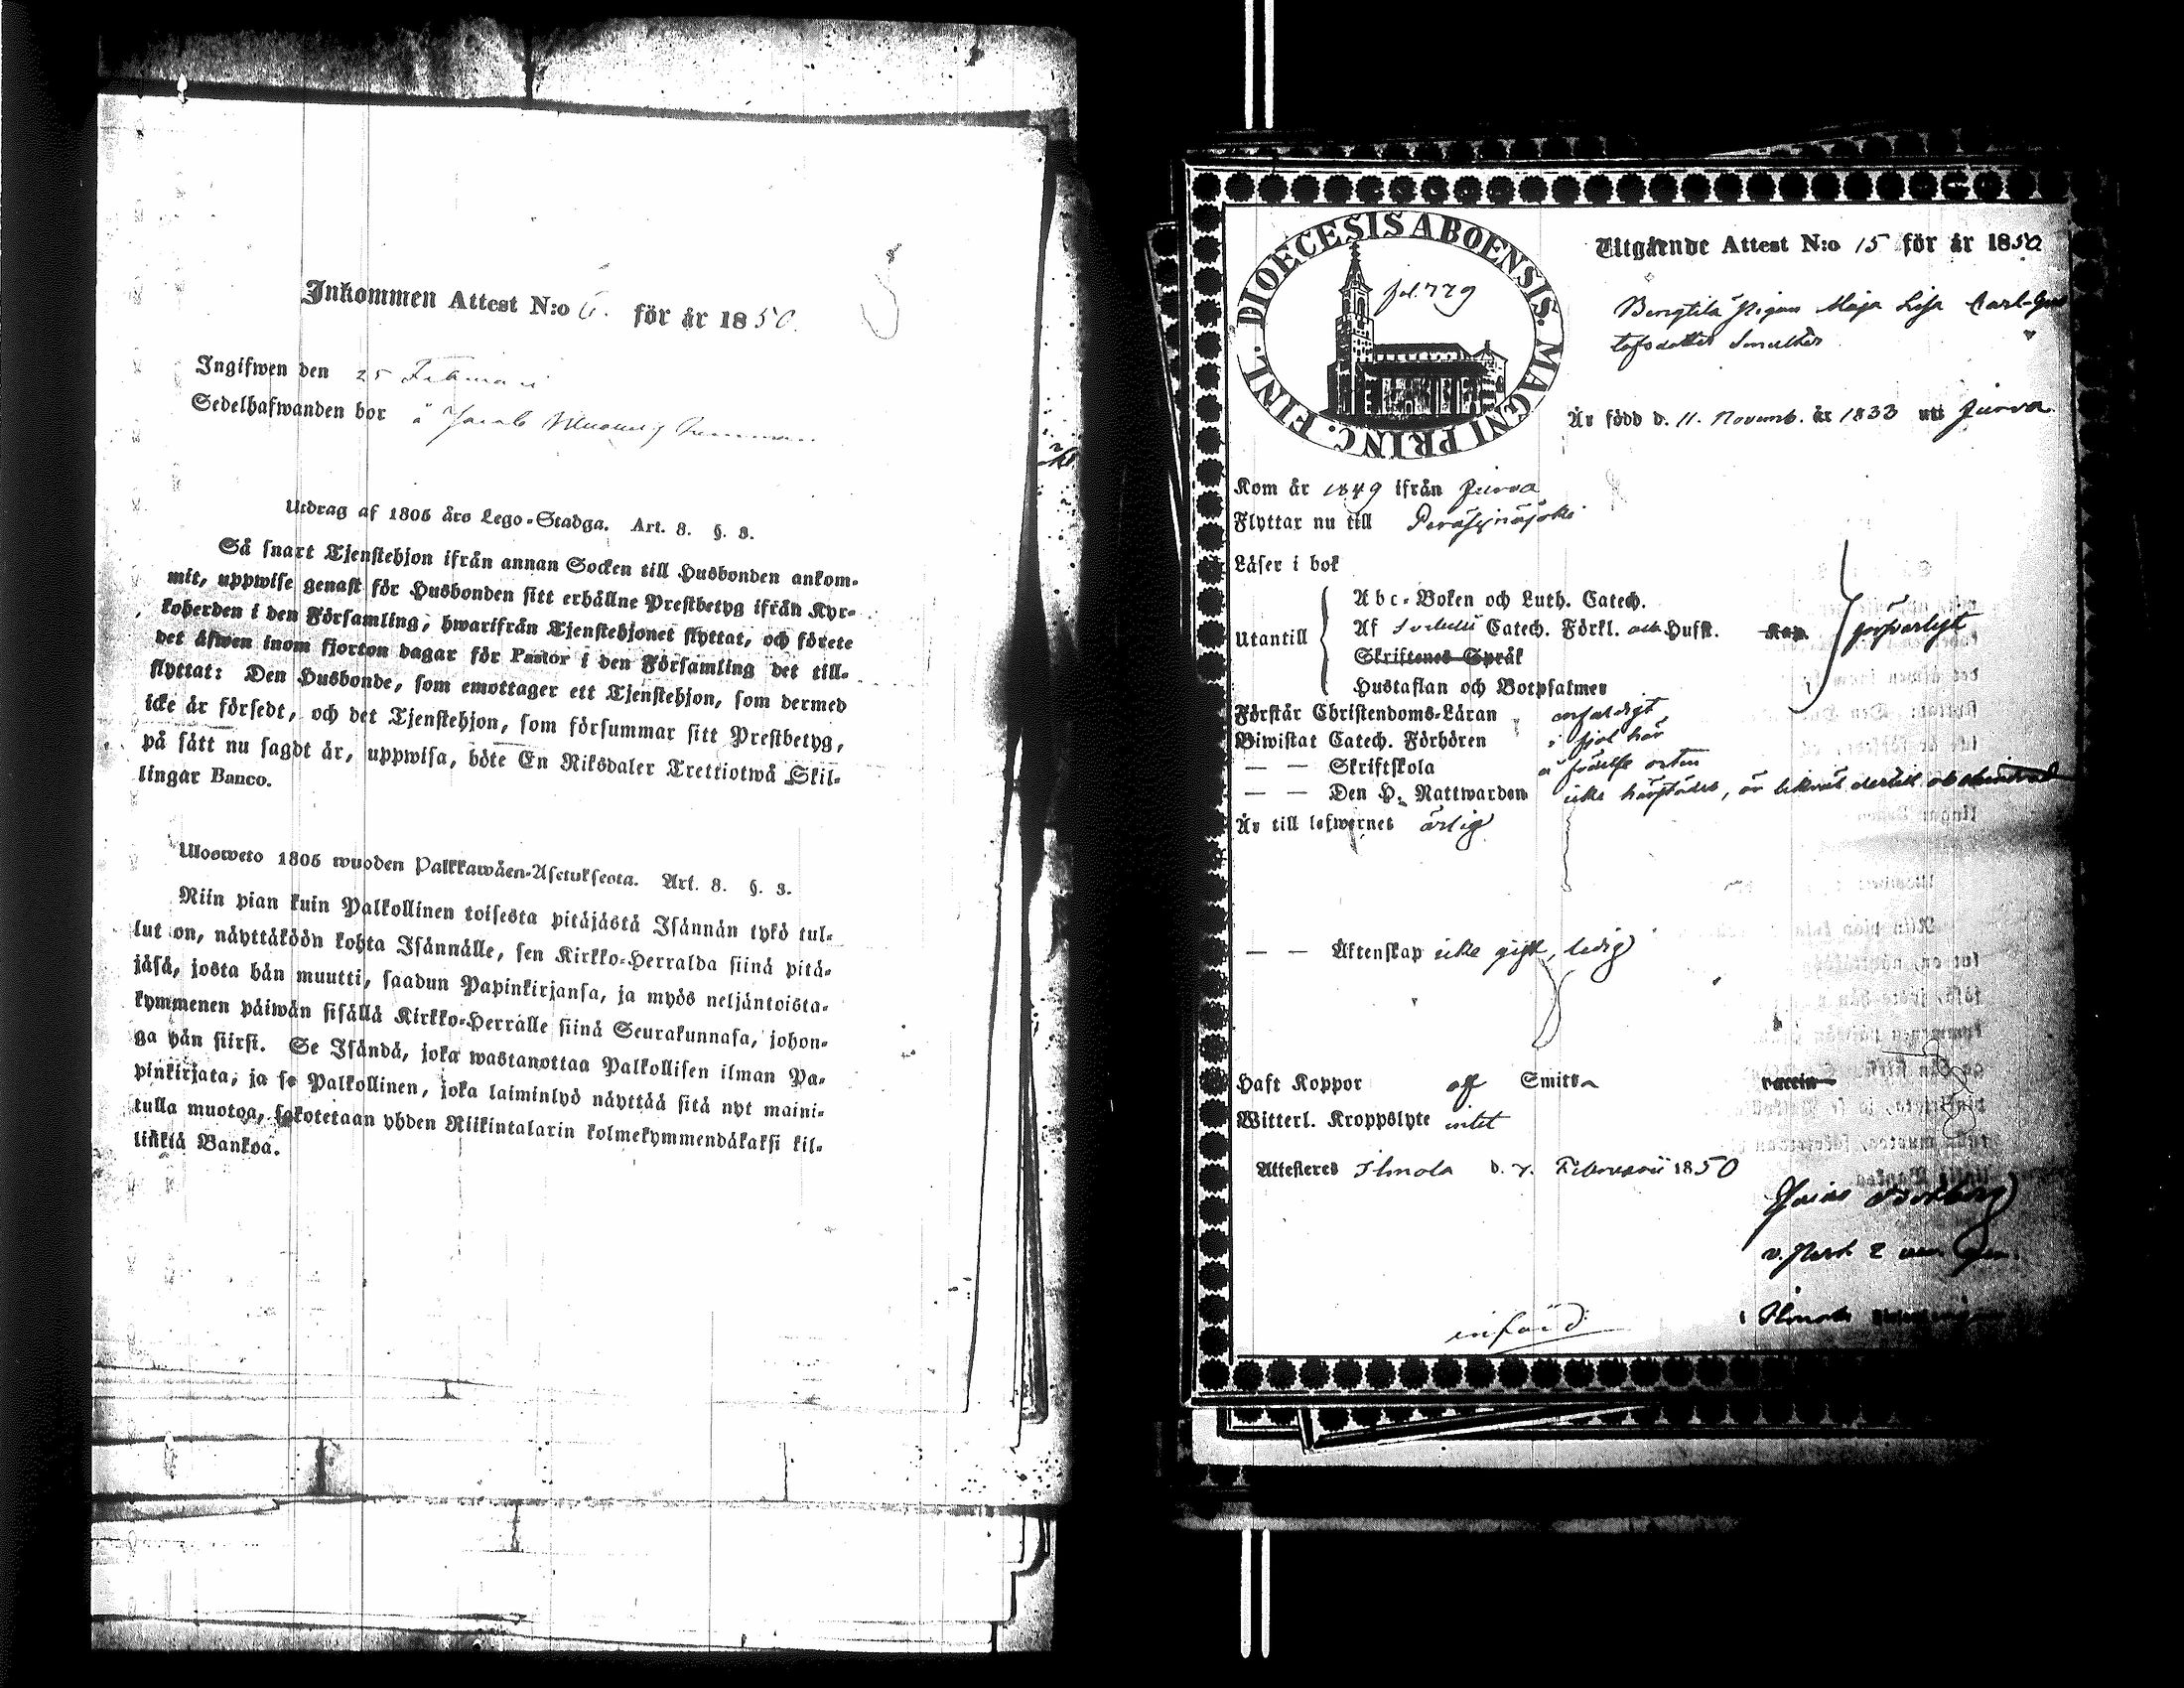 Inkommen Attest N:o 6. för år 1850.
Ingifwen den 25 Februari
Sedelhafwanden bor å Jacob
Utdrag af 1805 års Lego-Stadga. Art. 8. §. 3.
Så snart Tjenstehjon ifrån annan Socken till Husbonden ankom-
mit, uppwise genast för Husbonden sitt erhållne Prestbetyg ifrån Kyr-
koherden i den Församling, hwarifrån Tjenstehjonet flyttat, och förete
det äfwen inom fjorton dagar för Pastor i den Församling det till-
flyttat: Den Husbonde, som emottager ett Tjenstehjon, som dermed
icke är försedt, och det Tjenstehjon, som försummar sitt Prestbetyg,
på sätt nu sagdt är, uppwisa, böte En Riksdaler Trettiotwå Skil-
lingar Banco.
Ulosweto 1805 wuoden Palkkawäen-Asetuksesta. Art. 8. §. 3.
Niin pian kuin Palkollinen toisesta pitäjästä Isännän tykö tul-
lut on, näyttäköön kohta Isännälle, sen Kirkko-Herralda siinä pitä-
jäsä, josta hän muutti, saadun Papinkirjansa, ja myös neljäntoista-
kymmenen päiwän sisällä Kirkko-Herralle siinä Seurakunnasa, johon-
ga hän siirsi. Se Isändä, joka wastanottaa Palkollisen ilman Pa-
pinkirjata, ja se Palkollinen, joka laiminlyö näyttää sitä nyt maini-
tulla muotoa, sakotetaan yhden Riikintalarin kolmekymmendäkaksi kil-
linkiä Bankoa.
DIOECESIS ABOENSIS. MAGNI PRINC. FINL.
fol. 779
Utgående Attest N:o 15 för år 1850
Bengtilä Pigan Maja Lisa Carl-Gus
tafsdotter
Är född d. 11. Novemb. år 1833 uti Jurva
Kom år 1849 ifrån Jurva
Flyttar nu till Peräseinäjoki
Läser i bok
Utantill
Abc-Boken och Luth. Catech.
Af Svebelii Catech. Förkl. och Husst. Kap. försvarligt
Skriftenes Språk
Hustaflan och Botpsalmer
Förstår Christendoms-Läran enfaldigt,
Biwistat Catech. Förhören i fjol här
— — Skriftskola å födelse orten
— — Den H. Nattwarden icke härstädes, är likväl dertill
Är till lefwernet ärlig
— — Äktenskap icke gift, ledig
Haft Koppor af Smitta vaccin
Witterl. Kroppslyte intet
Attesteras Ilmola d. 7. Februarii 1850
införd